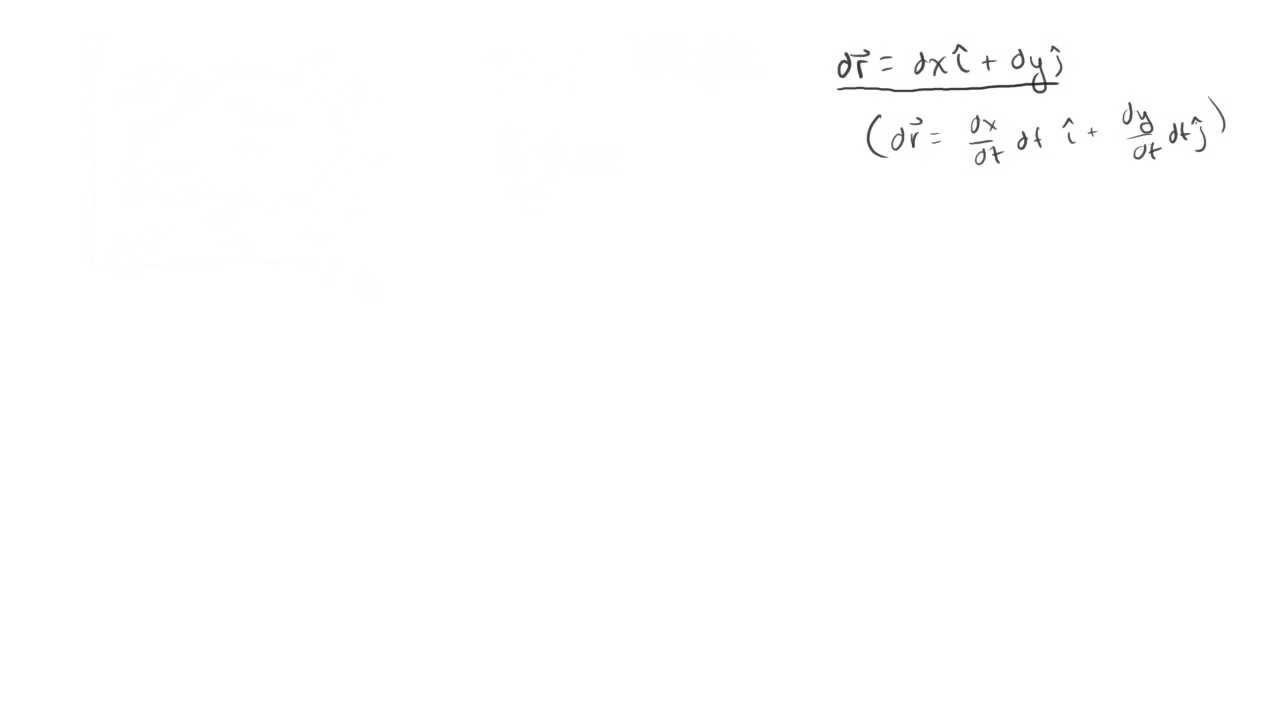 dr⃗ = dx î + dy ĵ
(dr⃗ = dx/dt dt î + dy/dt dt ĵ)